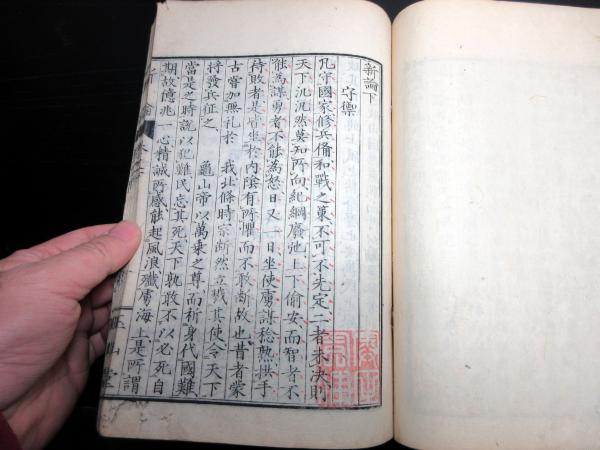 新論下
守禦
凡守國家修兵備和戰之策不可不先定二者未決則
天下汎汎然莫知所向紀綱廢弛上下偷安而智者不
能為謀勇者不能為怒日又一日坐使虜謀稔熟拱手
待敗者是皆坐於內陰有所懼而不敢斷故也昔者蒙
古嘗加無礼於 我北條時宗斷然立戮其使令天下
將發兵征之 龜山帝以萬乘之尊而祈身代國難
當是之時說以犯難民忘其死天下孰敢不以必死自
期故億兆一心精誠所感能起風浪殲虜海上是所謂
新論
玉山堂